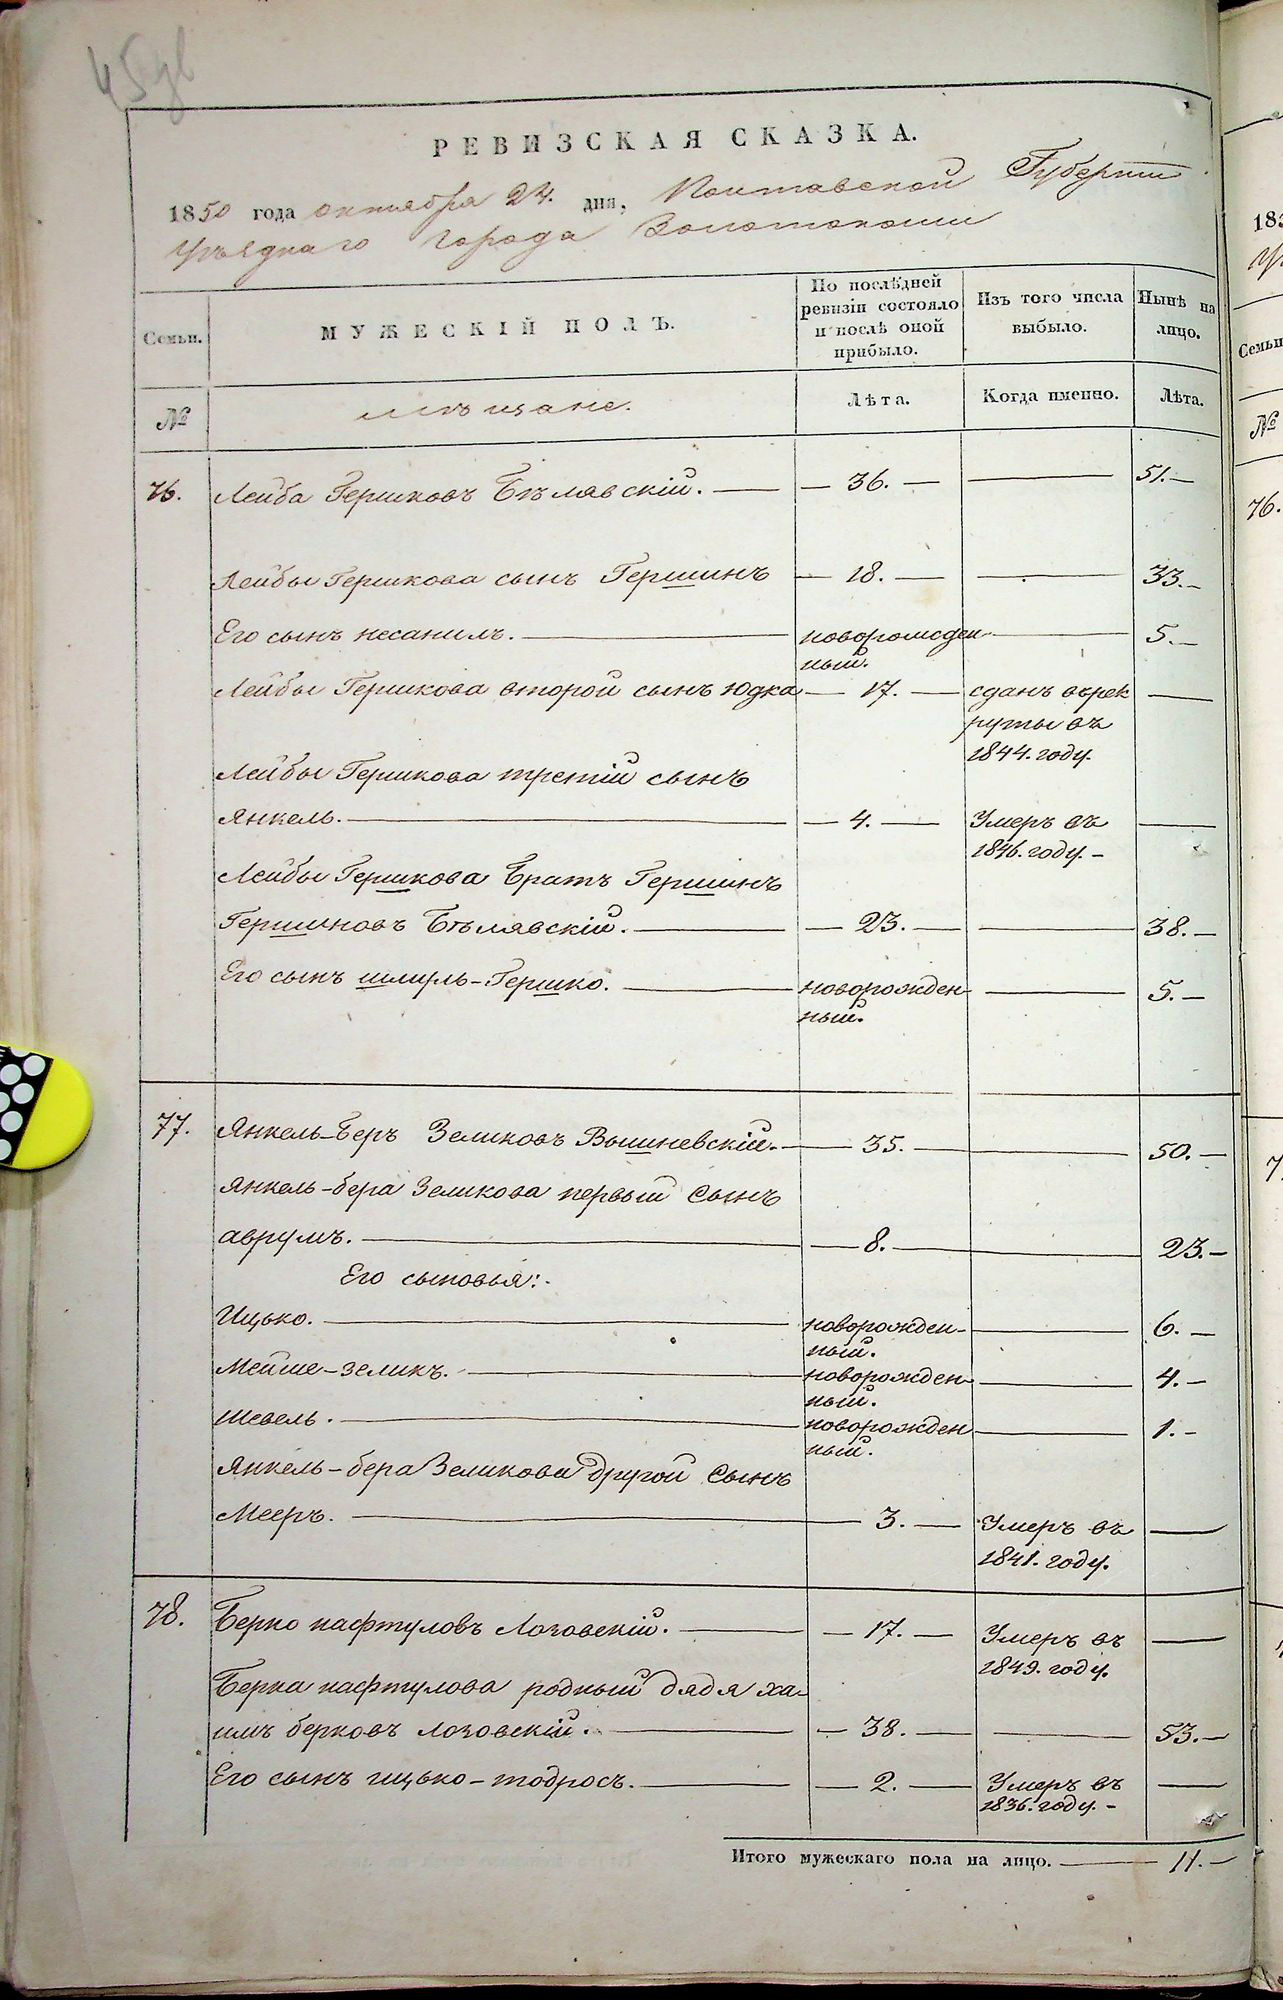 РЕВИЗСКАЯ СКАЗКА.
1850 года октября 24. дня, Полтавской Губернии
Уѣзднаго города Золотоноши
Семьи.
МУЖЕСКІЙ ПОЛЪ.
По послѣдней
ревизіи состояло
и послѣ оной
прибыло.
Изъ того числа
выбыло.
Нынѣ на
лицо.
№
мѣщане.
Лѣта.
Когда именно.
Лѣта.
76. Лейба Гершковъ Бѣлявскій. — 36. — — 51. —
Лейбы Гершкова сынъ Гершинъ — 18. — — 33. —
Его сынъ несанилъ. — новорожден — 5. —
ный.
Лейбы Гершкова второй сынъ Юдка — 17. — сданъ врек —
руты въ
1844. году.
Лейбы Гершкова третій сынъ
Янкель. — 4. — Умеръ въ —
1846. году. —
Лейбы Гершкова братъ Гершинъ
Гершиновъ Бѣлявскій. — 23. — — 38. —
Его сынъ шмуль-Гершко. — новорожден — 5. —
ный.
77. Янкель-беръ Зеликовъ Вышневскій. — 35. — — 50. —
Янкель-бера Зеликова первый Сынъ
аврумъ. — 8. — — 23. —
Его сыновья:
Ицько. — новорожден- — 6. —
ный.
Мейше-зеликъ. — новорожден- — 4. —
ный.
шевель. — новорожден — 1. -
ный.
Янкель-бера Зеликова другой Сынъ
Мееръ. — 3. — Умеръ въ —
1841. году.
78. Берко нафтуловъ Лозовскій. — 17. — Умеръ въ —
1849. году.
Берка нафтулова родный дядя ха-
имъ берковъ лозовскій. — 38. — — 53. —
Его сынъ ицько-тодросъ. — 2. — Умеръ въ —
1836. году. —
Итого мужескаго пола на лицо. — 11. —
185
Семьи
№
76.